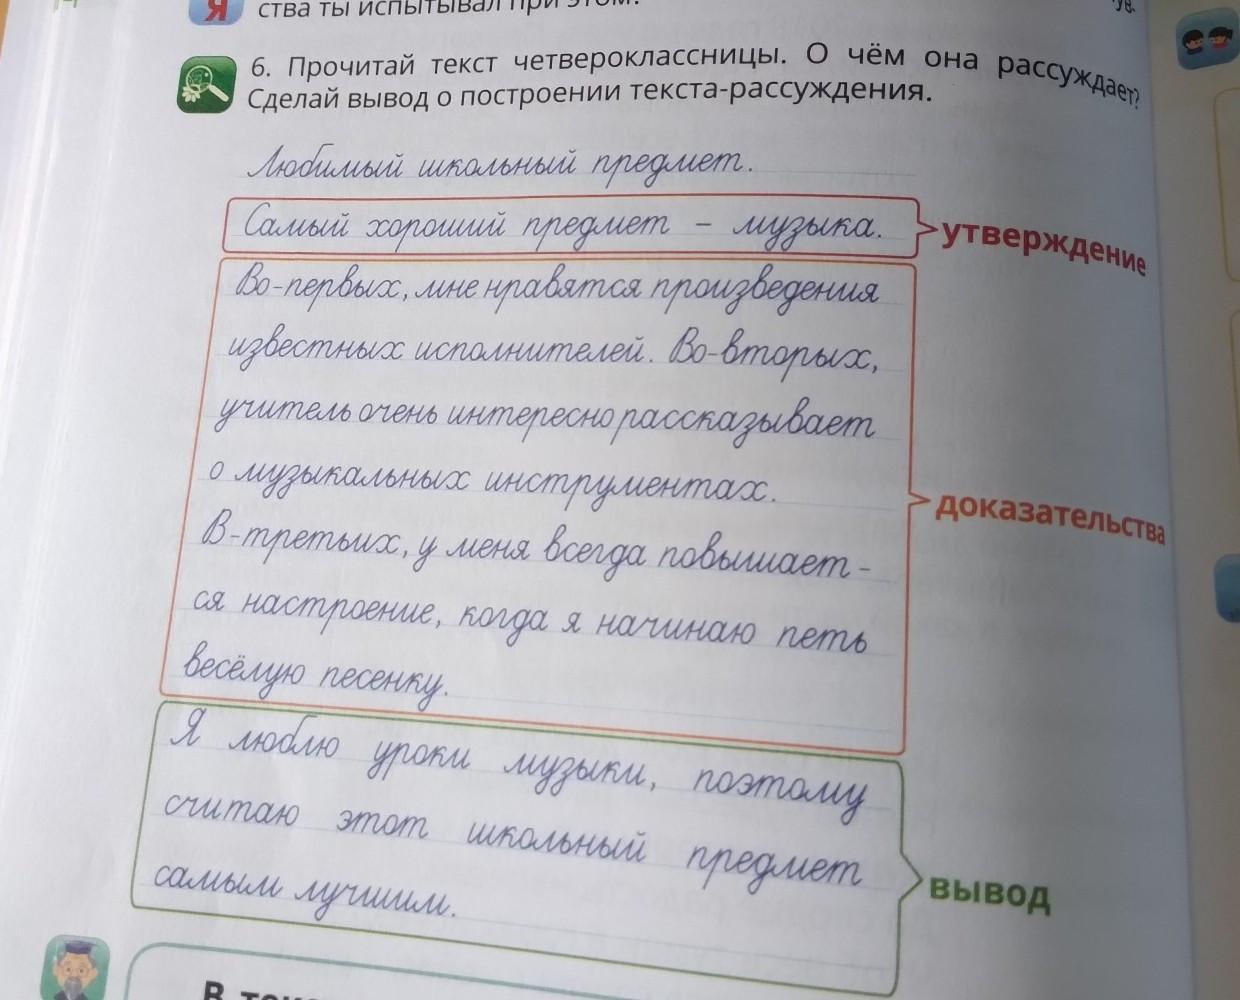 Я
ства ты испытывал при этом.
6. Прочитай текст четвероклассницы. О чём она рассуждает?
Сделай вывод о построении текста-рассуждения.
Любимый школьный предмет.
Самый хороший предмет – музыка.
утверждение
Во-первых, мне нравятся произведения
известных исполнителей. Во-вторых,
учитель очень интересно рассказывает
о музыкальных инструментах.
В-третьих, у меня всегда повышает-
ся настроение, когда я начинаю петь
весёлую песенку.
доказательства
Я люблю уроки музыки, поэтому
считаю этот школьный предмет
самым лучшим.
вывод
В